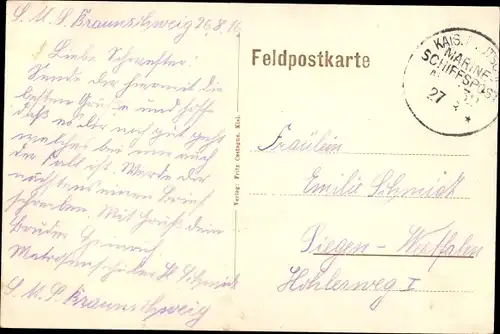 S. M. S. Braunschweig 26.8.16
Liebe Schwester!
Sende dir hiermit die
besten Grüße und hoffe
daß es dir noch gut geht
welches bei mir auch
der Fall ist. Werde dir
nächstens einen Brief
schreiben. Mit Gruß dein
Bruder Heinrich
Schmidt
S. M. S. Braunschweig
Verlag: Fritz Castagne, Kiel.
Feldpostkarte
KAIS.
MARINE-
SCHIFFSPOST
27 8
Fräulein
Emilie Schmidt
Siegen-Westfalen
Höhlerweg I